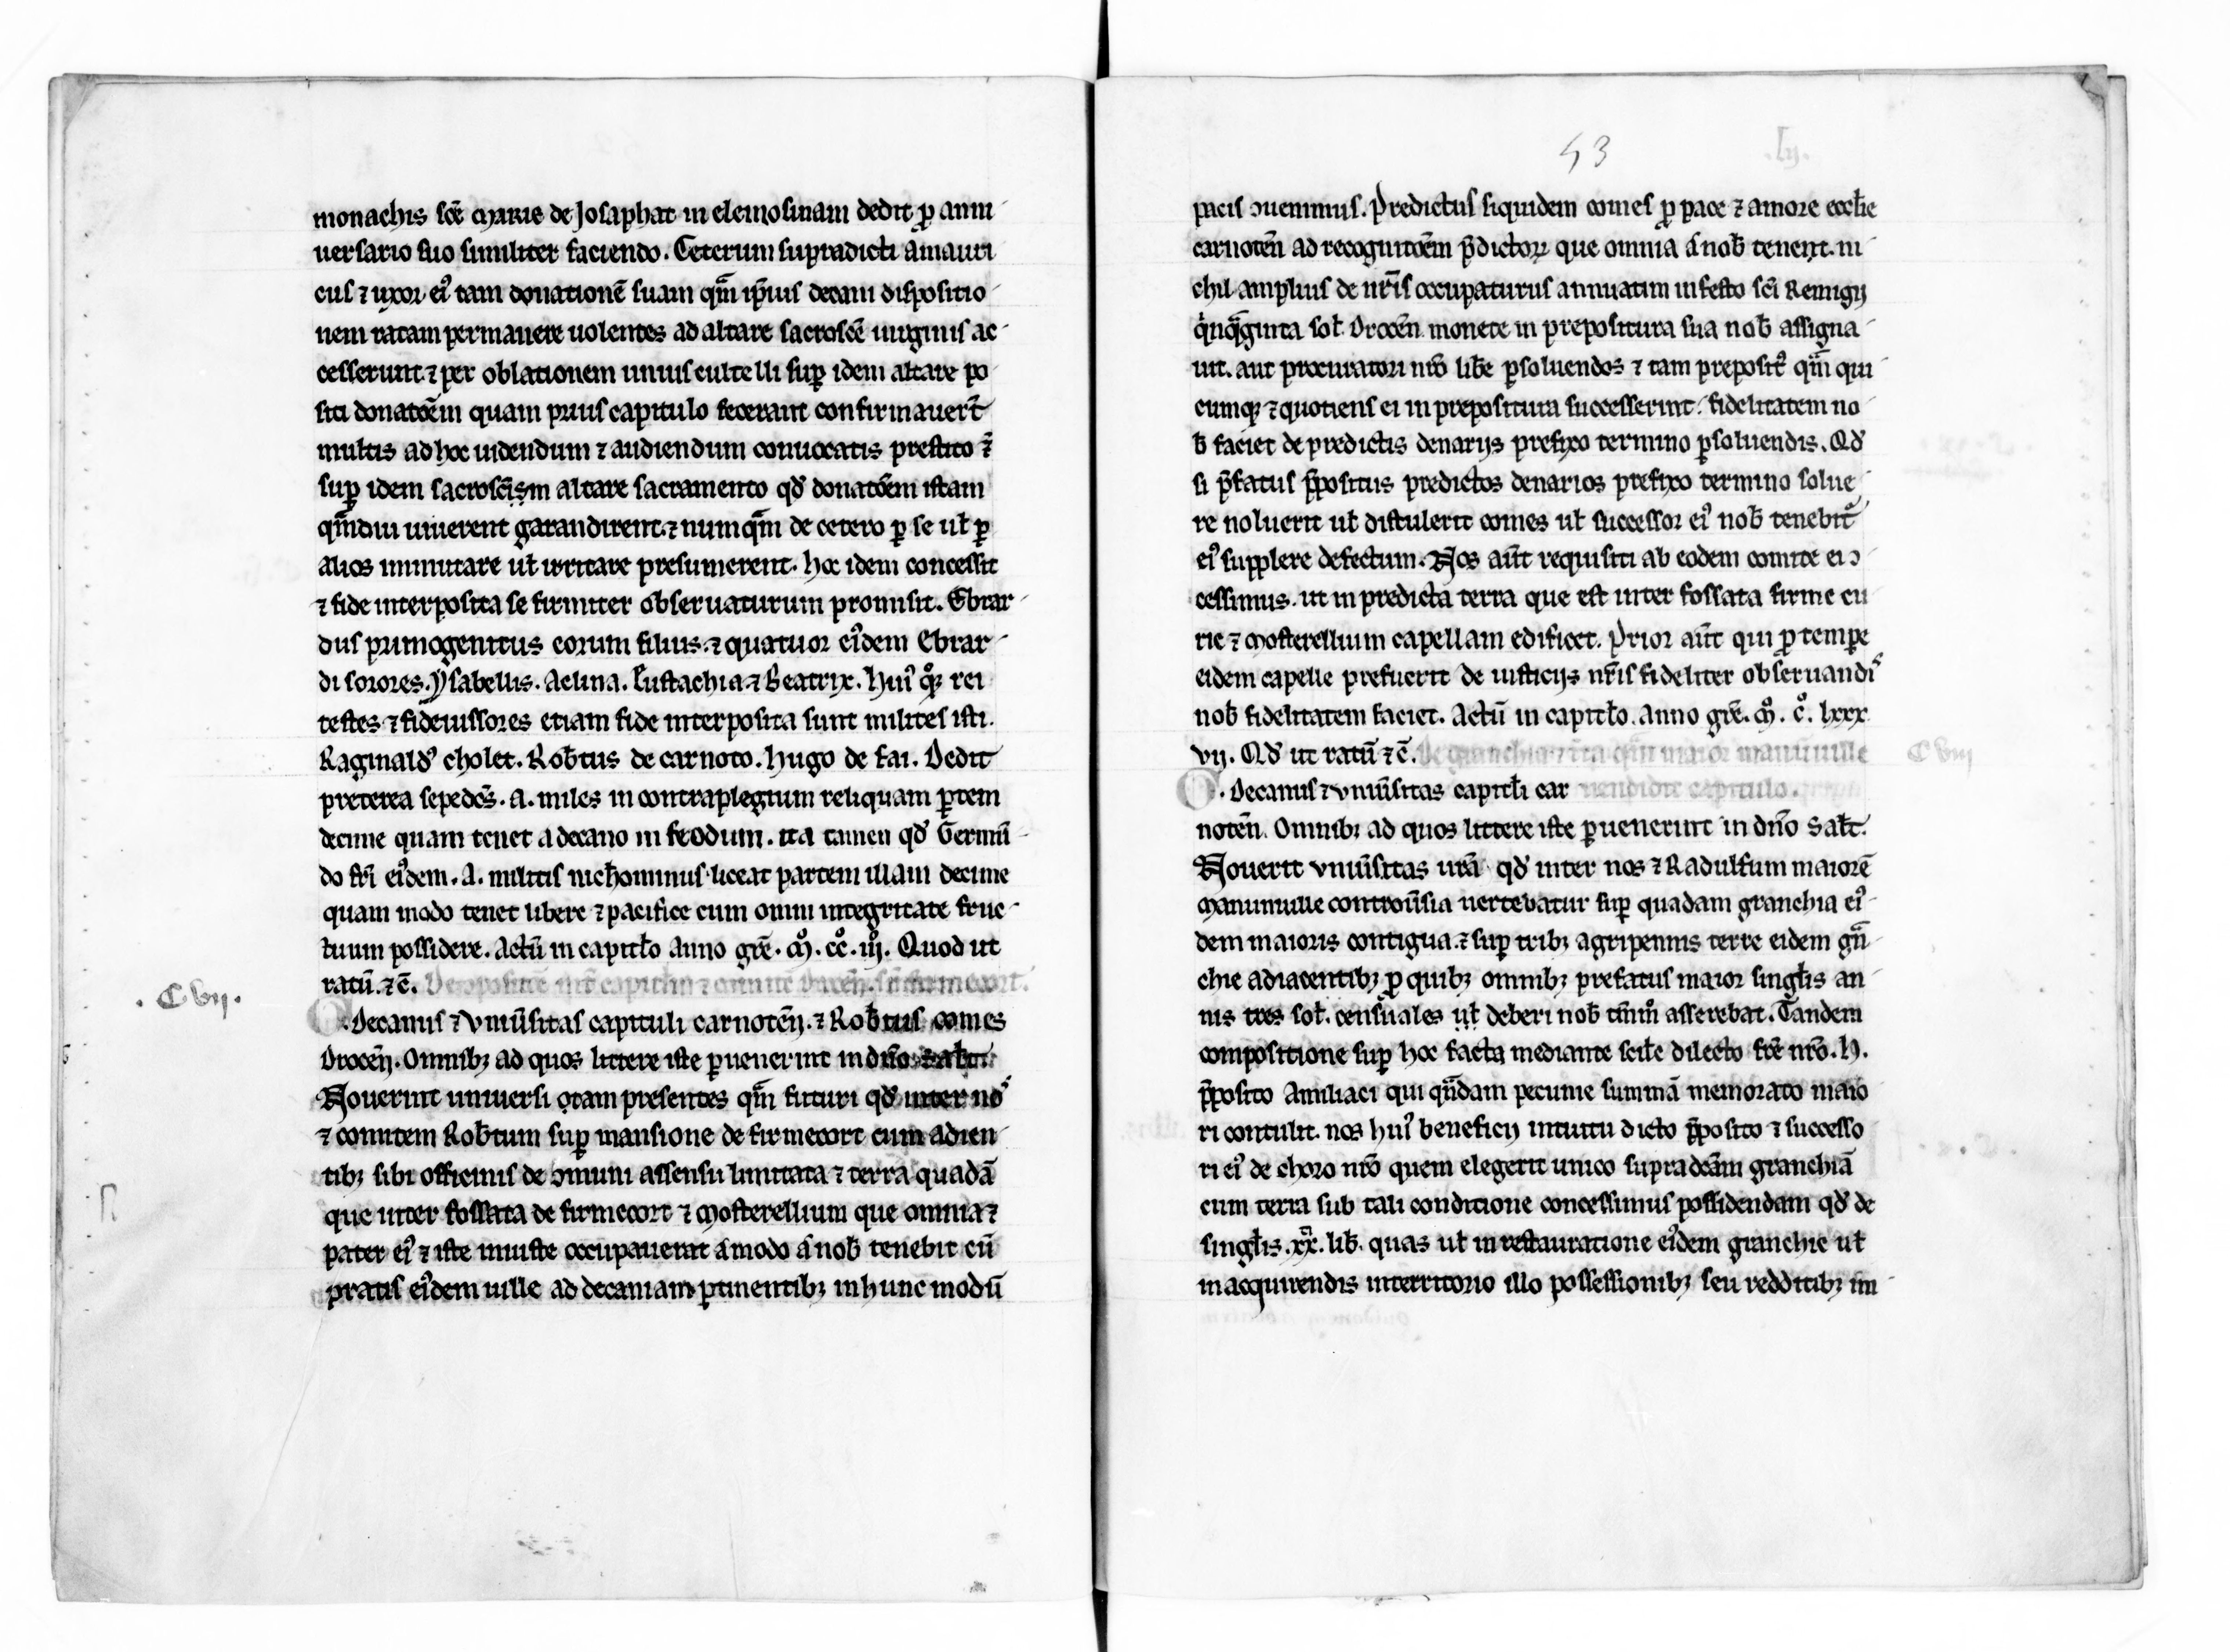 monachis sc̄e marie de Josaphat in elemosinam dedit ꝓ anni
uersario suo similiter faciendo. Ceterum supradicti amauri
cus ⁊ uxor eiꝰ tam donationē suam qm̄ ip̄ius decani dispositio
nem ratam permanere uolentes ad altare sacrosc̄e uirginis ac
cesserunt ⁊ per oblationem unius cultelli suꝑ idem altare po
siti donatōem quam prius capitulo fecerant confirmauer̄t
multis ad hoc uidendum ⁊ audiendum conuocatis prestito ⁊̄
suꝑ idem sacrosc̄ism altare sacramento qđ donatōem istam
qm̄diu uiuerent garandirent ⁊ numqm̄ de cetero ꝑ se uł ꝑ
alios inmutare uł irritare presumerent. hoc idem concessit
⁊ fide interposita se firmiter obseruaturum promisit. Ebrar
dus primogenitus eorum filius. ⁊ quatuor eiꝰdem Ebrar
di sorores. ysabellis. Aelina. Eustachia ⁊ Beatrix. Huiꝰ qͦꝫ rei
testes ⁊ fideiussores etiam fide interposita sunt milites isti.
Raginaldꝰ cholet. Rob̄tus de carnoto. hugo de fai. Dedit
preterea sepedc̄s. A. miles in contraplegium reliquam ꝑtem
decime quam tenet a decano in feodum. ita tamen qđ Germū
do fr̄i eiꝰdem. A. militis nichominus liceat partem illam decime
quam modo tenet libere ⁊ pacifice cum omni integritate fruc
tuum possidere. Actū in capitło Anno grē. mͦ. ccͦ. iijͦ. Quod ut
ratū. ⁊c̄. De cōpositōe int̄ capitłm ⁊ comitē Drocēn. sr̄ firmecort.
. C vij.
O. Decanus ⁊ vniūsitas capituli carnotēn. ⁊ Rob̄tus comes
Drocēn. Omnibꝫ ad quos littere iste ꝑuenerint in dn̄o Sałt.
Nouerint uniuersi ꝙ tam presentes qm̄ futuri qđ inter noꝰ
⁊ comitem Rob̄tum suꝑ mansione de firmecort cum adien
tibꝫ sibi officinis de ꝯmuni assensu limitata ⁊ terra quadā
que inter fossata de firmecort ⁊ mosterellium que omnia ⁊
pater eiꝰ ⁊ iste iniuste occupauerat ámodo á nob̄ tenebit cū
pratis eiꝰdem uille ad decaniam ꝑtinentibꝫ in hunc modū
53
.lij.
pacis ꝯuenimus. Predictus siquidem comes ꝓ pace ⁊ amore eccłie
carnotēn ad recognitōem p̄dictoꝝ que omnia á nob̄ tenent. ni
chil amplius de nr̄is occupaturus annuatim in festo sc̄i Remigij
qͥnqͣginta soł. Drocēn monete in prepositura sua nob̄ assigna
uit. aut procuratori nr̄o lib̄e ꝑsoluendos ⁊ tam prepositꝰ qm̄ qui
cumqꝫ ⁊ quotiens ei in prepositura successerint. fidelitatem no
b̄ faciet de predictis denarijs prefixo termino ꝑsoluendis. Qđ
si p̄fatus p̄positus predictos denarios prefixo termino solue
re noluerit uł distulerit comes uł successor eiꝰ nob̄ tenebit᷑
eiꝰ supplere defectum. Nos aūt requisiti ab eodem comite ei ꝯ
cessimus. ut in predicta terra que est inter fossata firme cu
rie ⁊ mosterellium capellam edificet. Prior aūt qui ꝓ tempe
eidem capelle prefuerit de iusticijs nr̄is fideliter obseruandiꝰ
nob̄ fidelitatem faciet. Actū in capitło. Anno grē. mͦ. cͦ. lxxx
vij. Qđ ut ratū ⁊c̄. De granchia ⁊ t̄ra qm̄ maior manūuille
C viij
O. Decanus ⁊ vniūsitas capitłi car uendidit capitulo.
notēn. Omnibꝫ ad quos littere iste ꝑuenerint in dn̄o Sałt.
Nouerit vniūsitas ur̄a qđ inter nos ⁊ Radulfum maiorē
manunuille controūsia uertebatur suꝑ quadam granchia eiꝰ
dem maioris contigua. ⁊ suꝑ tribꝫ agripennis terre eidem gn̄
chie adiacentibꝫ ꝓ quibꝫ omnibꝫ prefatus maior singłis an
nis tres soł. censuales uł deberi nob̄ tm̄mͦ asserebat. Tandem
compositione suꝑ hoc facta mediante scił̄e dilecto fr̄e nr̄o. H.
p̄posito Amiliaci qui qn̄dam pecunie summā memorato maio
ri contulit. nos huiꝰ beneficij intuitu dicto p̄posito ⁊ successo
ri eiꝰ de choro nr̄o quem elegerit unico supradcām granchiā
cum terra sub tali conditione concessimus possidendam qđ de
singłis. xx. lib̄. quas uł in restauratione eiꝰdem granchie uł
in acquirendis in territorio illo possessionibꝫ seu redditibꝫ im